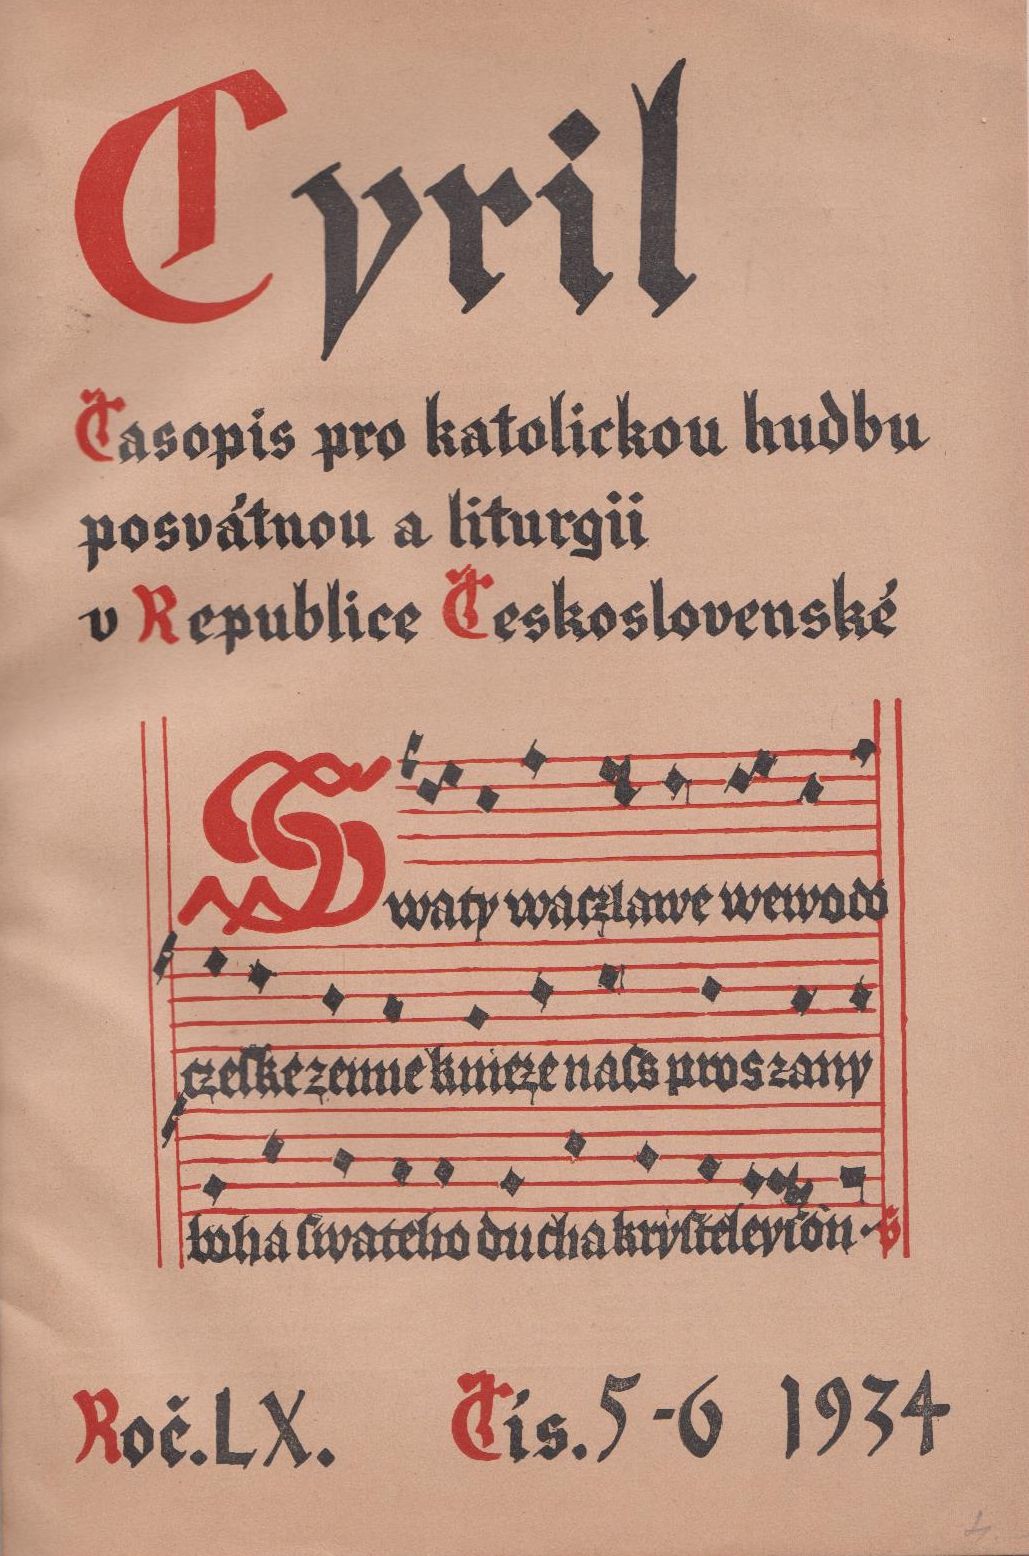 Cyril
Časopis pro katolickou hudbu
posvátnou a liturgii
v Republice Československé
Swaty waczlawe wewodo
czeske zemie knieze nass pros za ny
boha swateho ducha krysteleyson
Roč. LX. Čís. 5-6 1934